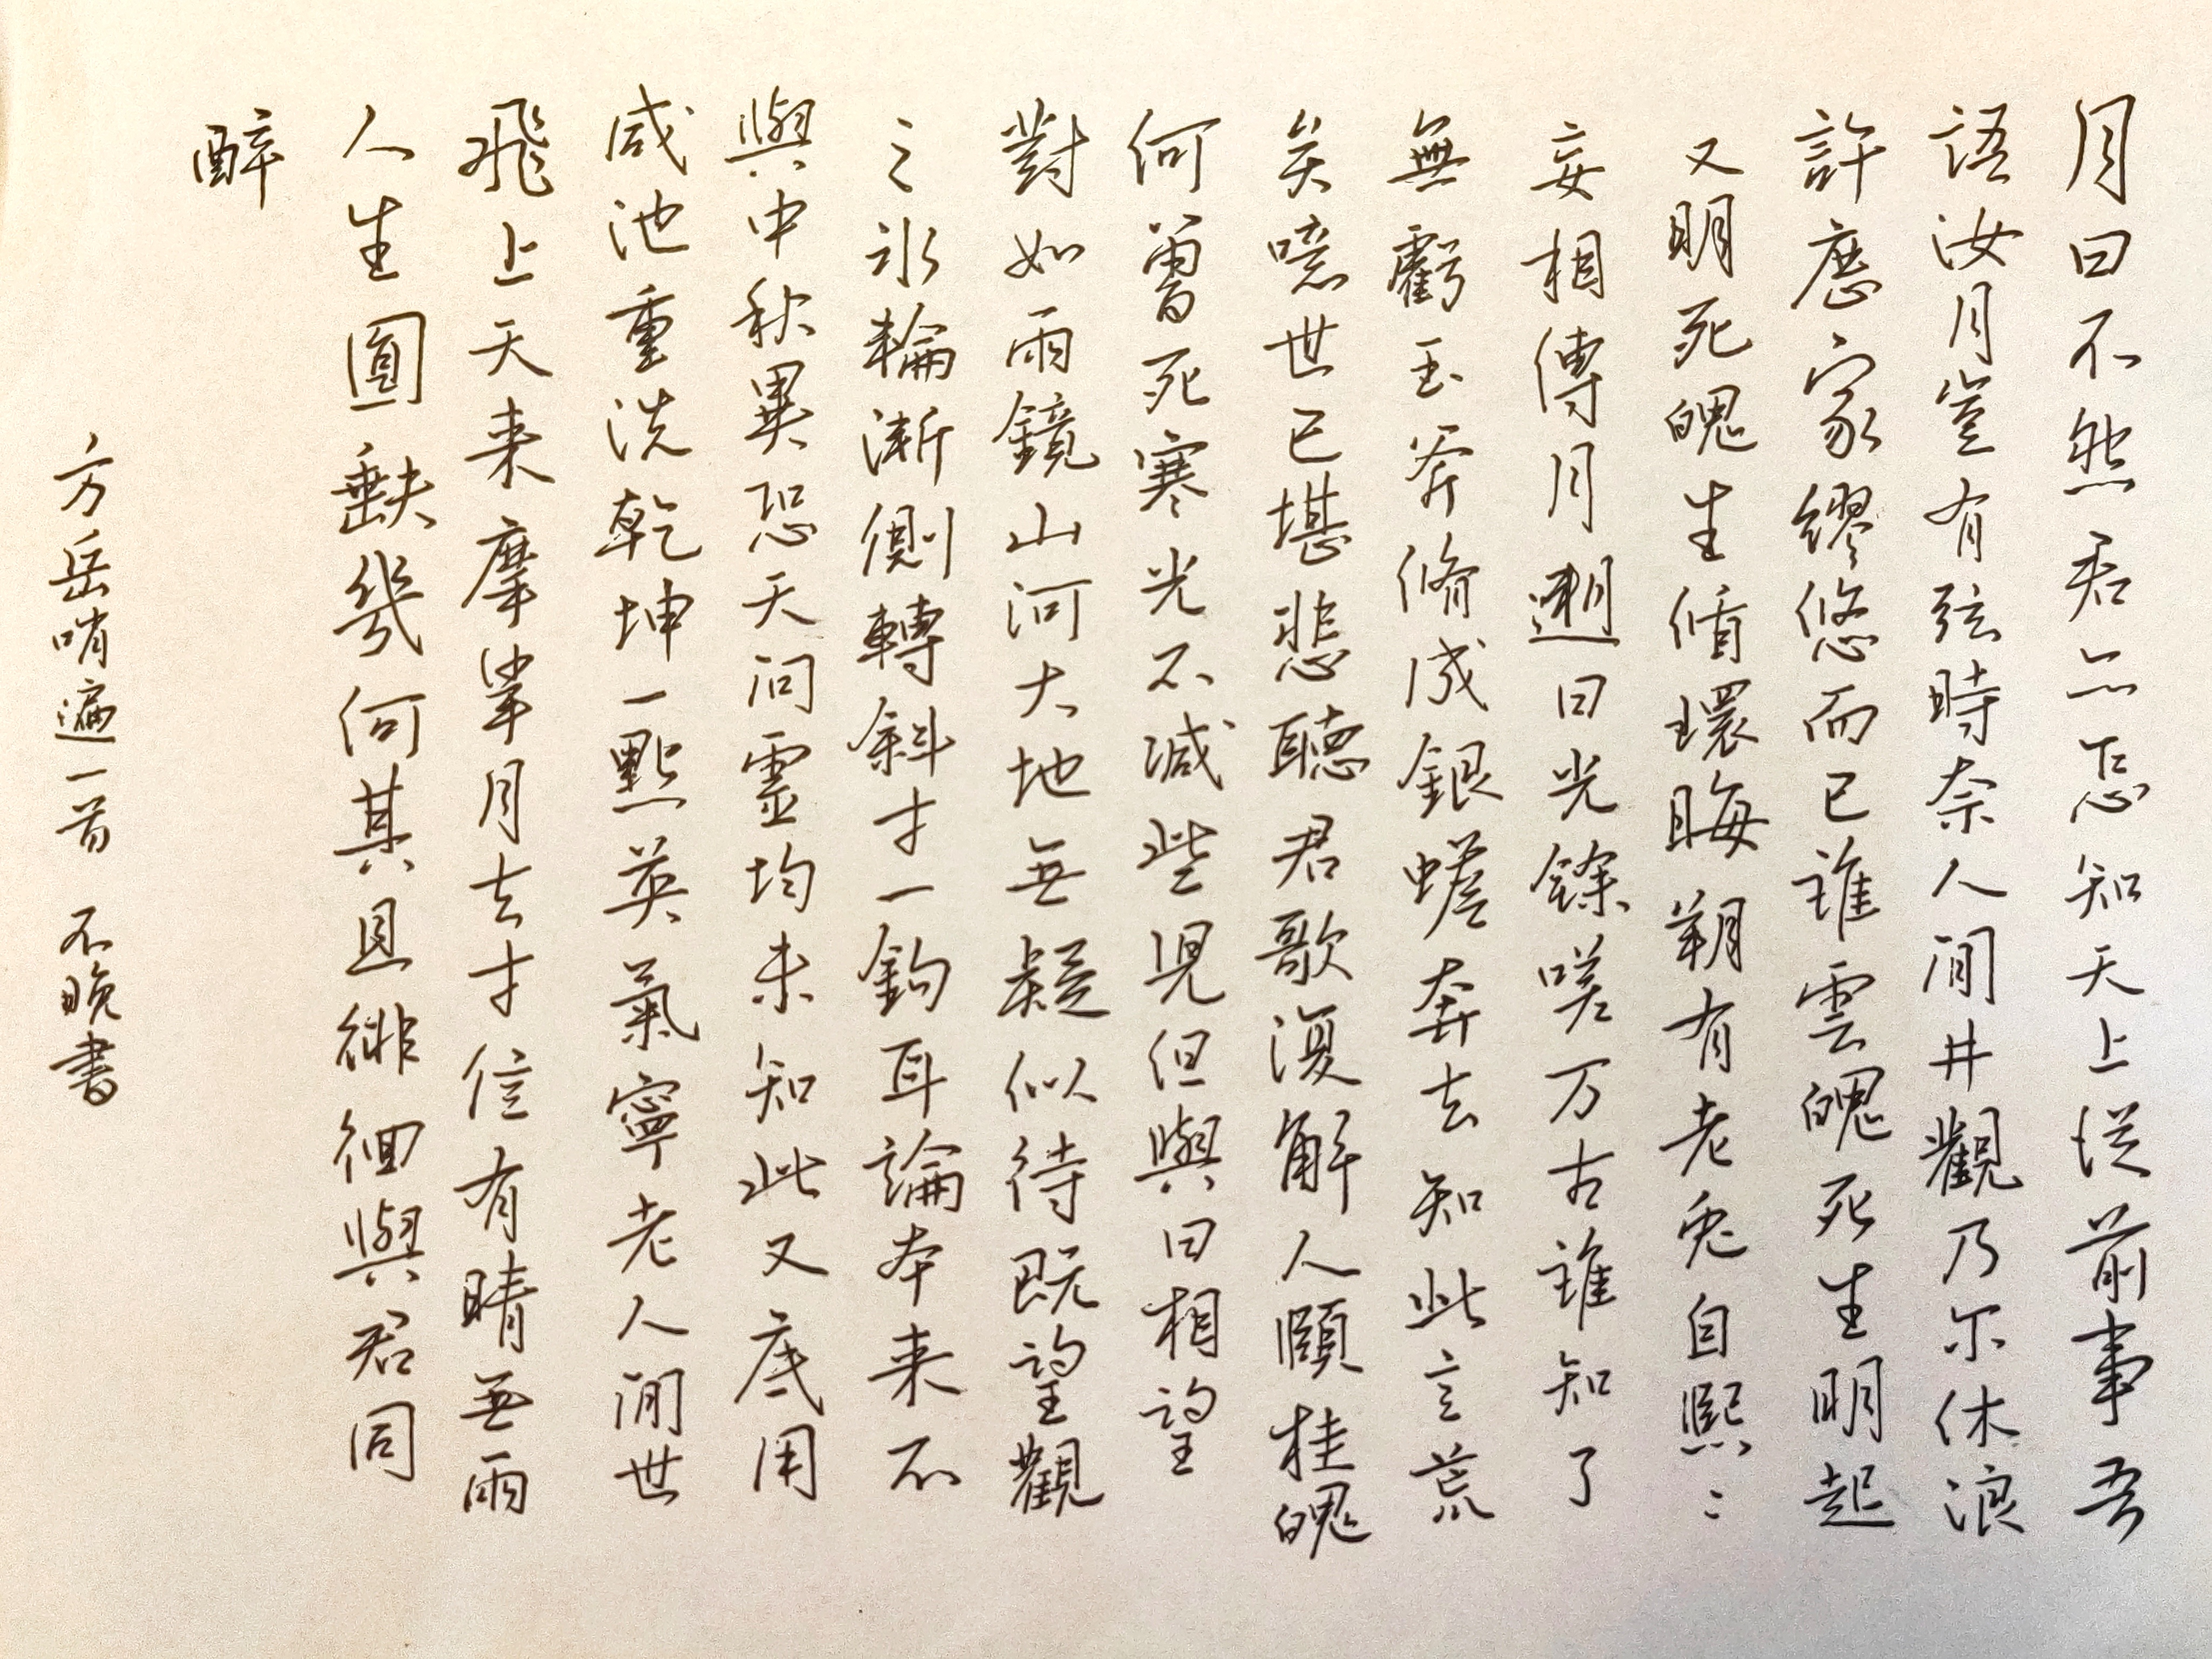 月曰不然君亡怎知天上從前事吾
語汝月豈有弦時奈人间井觀乃尔休浪
許歷家繆悠而已誰雲魄死生明起
又明死魄生循環晦朔有老兔自熙〻
妄相傳月遡日光餘嗟万古誰知了
無虧玉斧脩成銀蟾奔去知此言荒
矣噫世已堪悲聽君歌復解人頤桂魄
何曽死寒光不減些児但與日相望
對如雨鏡山河大地無疑似待既望觀
之氷輪漸側轉斜才一鈎耳論本来不
與中秋異恐天问靈均未知此又底用
咸池重洗乾坤一點英氣寧老人间世
飛上天来摩挲月去才信有晴無雨
人生圓缺幾何其且徘徊與君同
醉
方岳哨遍一首 不晚書